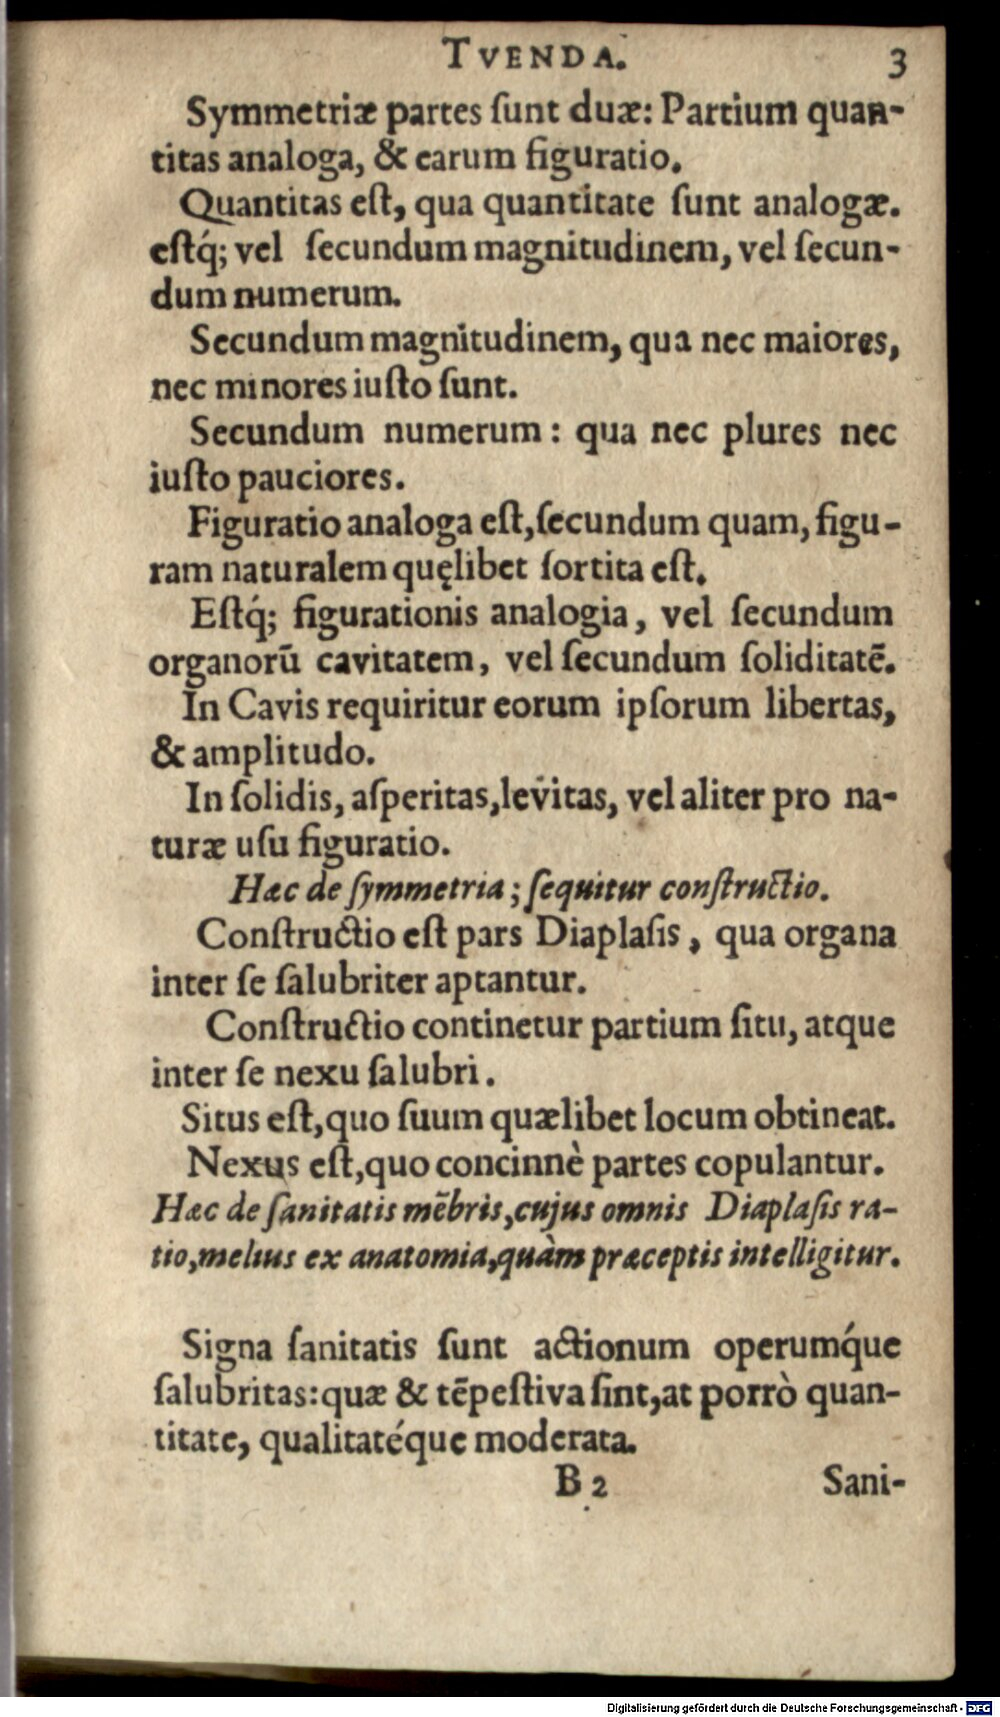 TVENDA. 3
Symmetriæ partes ſunt duæ: Partium quan-
titas analoga, & earum figuratio.
Quantitas eſt, qua quantitate ſunt analogæ.
eſtq́; vel ſecundum magnitudinem, vel ſecun-
dum numerum.
Secundum magnitudinem, qua nec maiores,
nec minores iuſto ſunt.
Secundum numerum: qua nec plures nec
iuſto pauciores.
Figuratio analoga eſt, ſecundum quam, figu-
ram naturalem quęlibet ſortita eſt.
Eſtq́; figurationis analogia, vel ſecundum
organorū cavitatem, vel ſecundum ſoliditatē.
In Cavis requiritur eorum ipſorum libertas,
& amplitudo.
In ſolidis, aſperitas, levitas, vel aliter pro na-
turæ uſu figuratio.
Hæc de ſymmetria; ſequitur conſtructio.
Conſtructio eſt pars Diaplaſis, qua organa
inter ſe ſalubriter aptantur.
Conſtructio continetur partium ſitu, atque
inter ſe nexu ſalubri.
Situs eſt, quo ſuum quælibet locum obtineat.
Nexus eſt, quo concinnè partes copulantur.
Hæc de ſanitatis mēbris, cujus omnis Diaplaſis ra-
tio, melius ex anatomia, quàm præceptis intelligitur.
Signa ſanitatis ſunt actionum operumq́ue
ſalubritas: quæ & tēpeſtiva ſint, at porrò quan-
titate, qualitatéque moderata.
B 2 Sani-
Digitalisierung gefördert durch die Deutsche Forschungsgemeinschaft - DFG